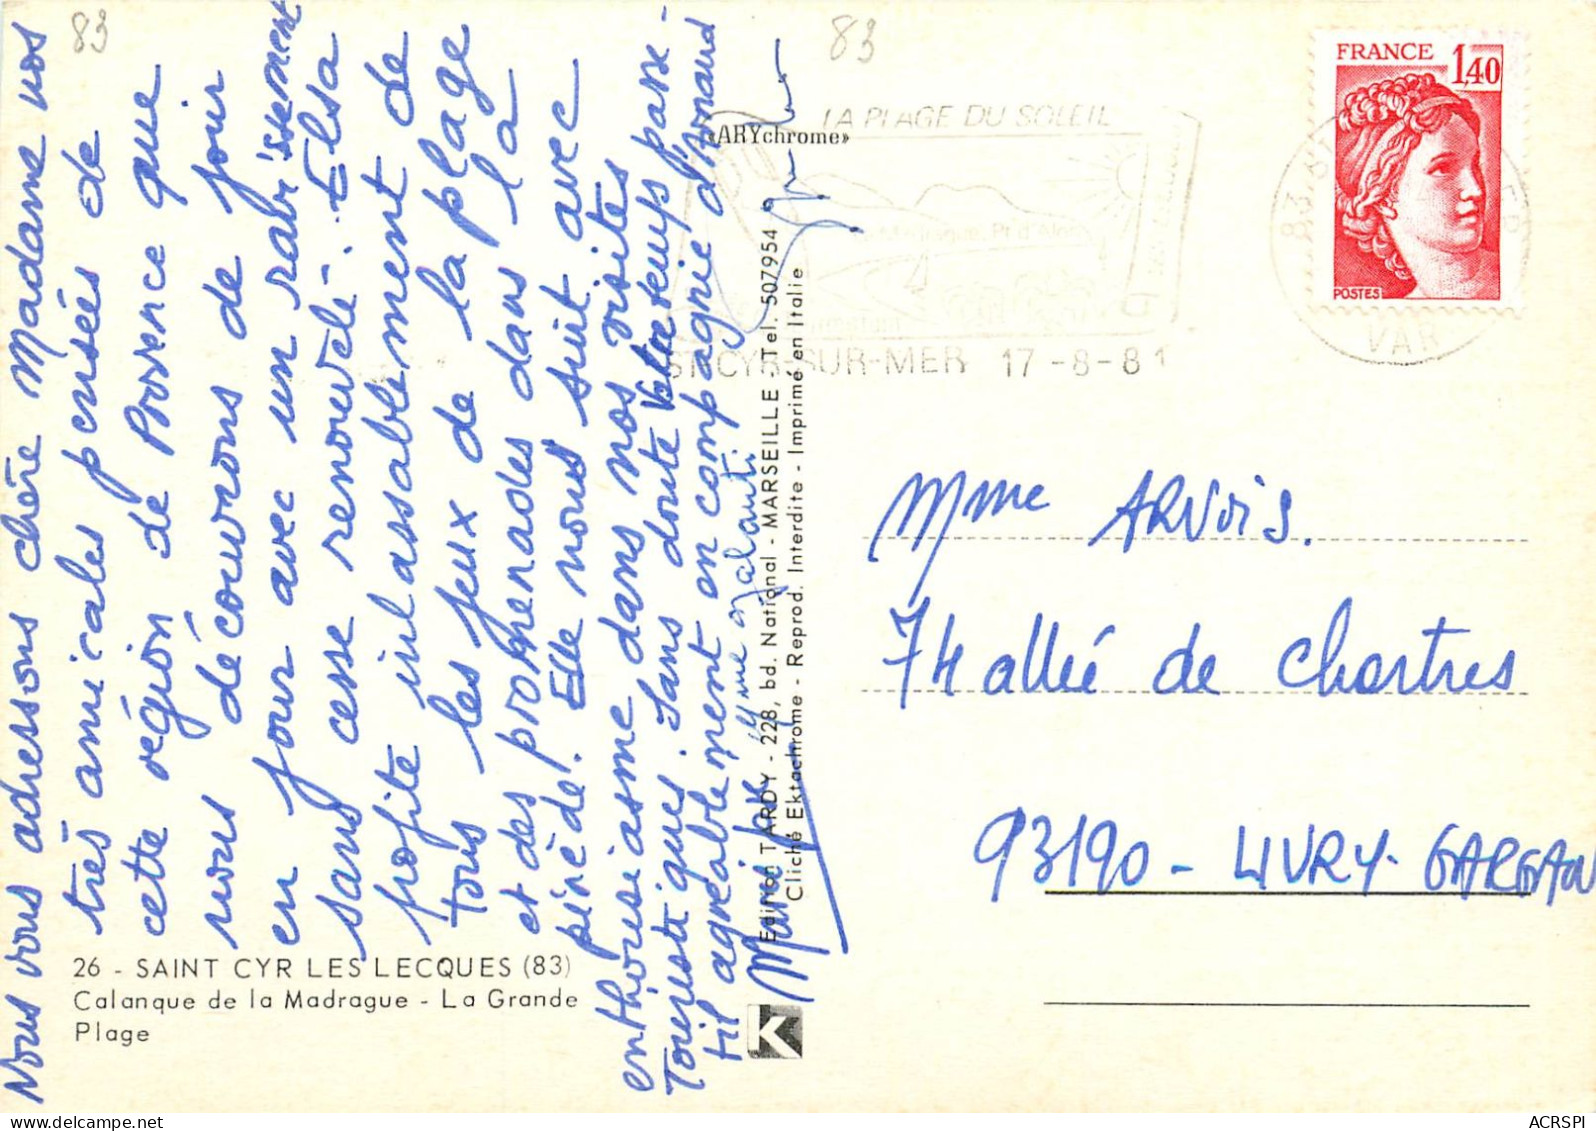 83
83
Nous vous adressons chère Madame nos
très amicales pensées de
cette région de Provence que
nous découvrons de jour
en jour avec un rabissement
sans cesse renouvelé. Elsa
profite inlassablement de
tous les jeux de la plage
et des promenades dans la
pinède. Elle nous suit avec
enthousiasme dans nos visites
Touristiques. Sans doute votre temps passe-
til agréablement en compagnie d'Arnaud
26 - SAINT CYR LES LECQUES (83)
Calanque de la Madrague - La Grande
Plage
«ARYchrome»
Edition TARDY - 228, bd. National - MARSEILLE - Tel. 507954
Cliché Ektachrome - Reprod. Interdite - Imprimé en Italie
K
LA PLAGE DU SOLEIL
ST CYR-SUR-MER 17-8-81
VAR
FRANCE
1,40
POSTES
Mme ARVOIS.
74 allée de Chartres
93190 - LIVRY-GARGAN
ACRSPI